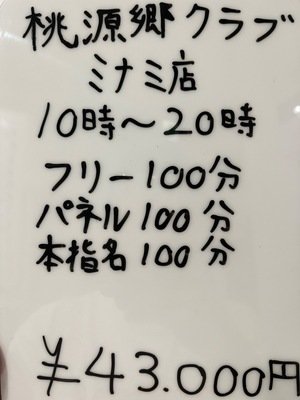 桃源郷クラブ
ミナミ店
10時～20時
フリー100分
パネル100分
本指名100分
¥43.000円